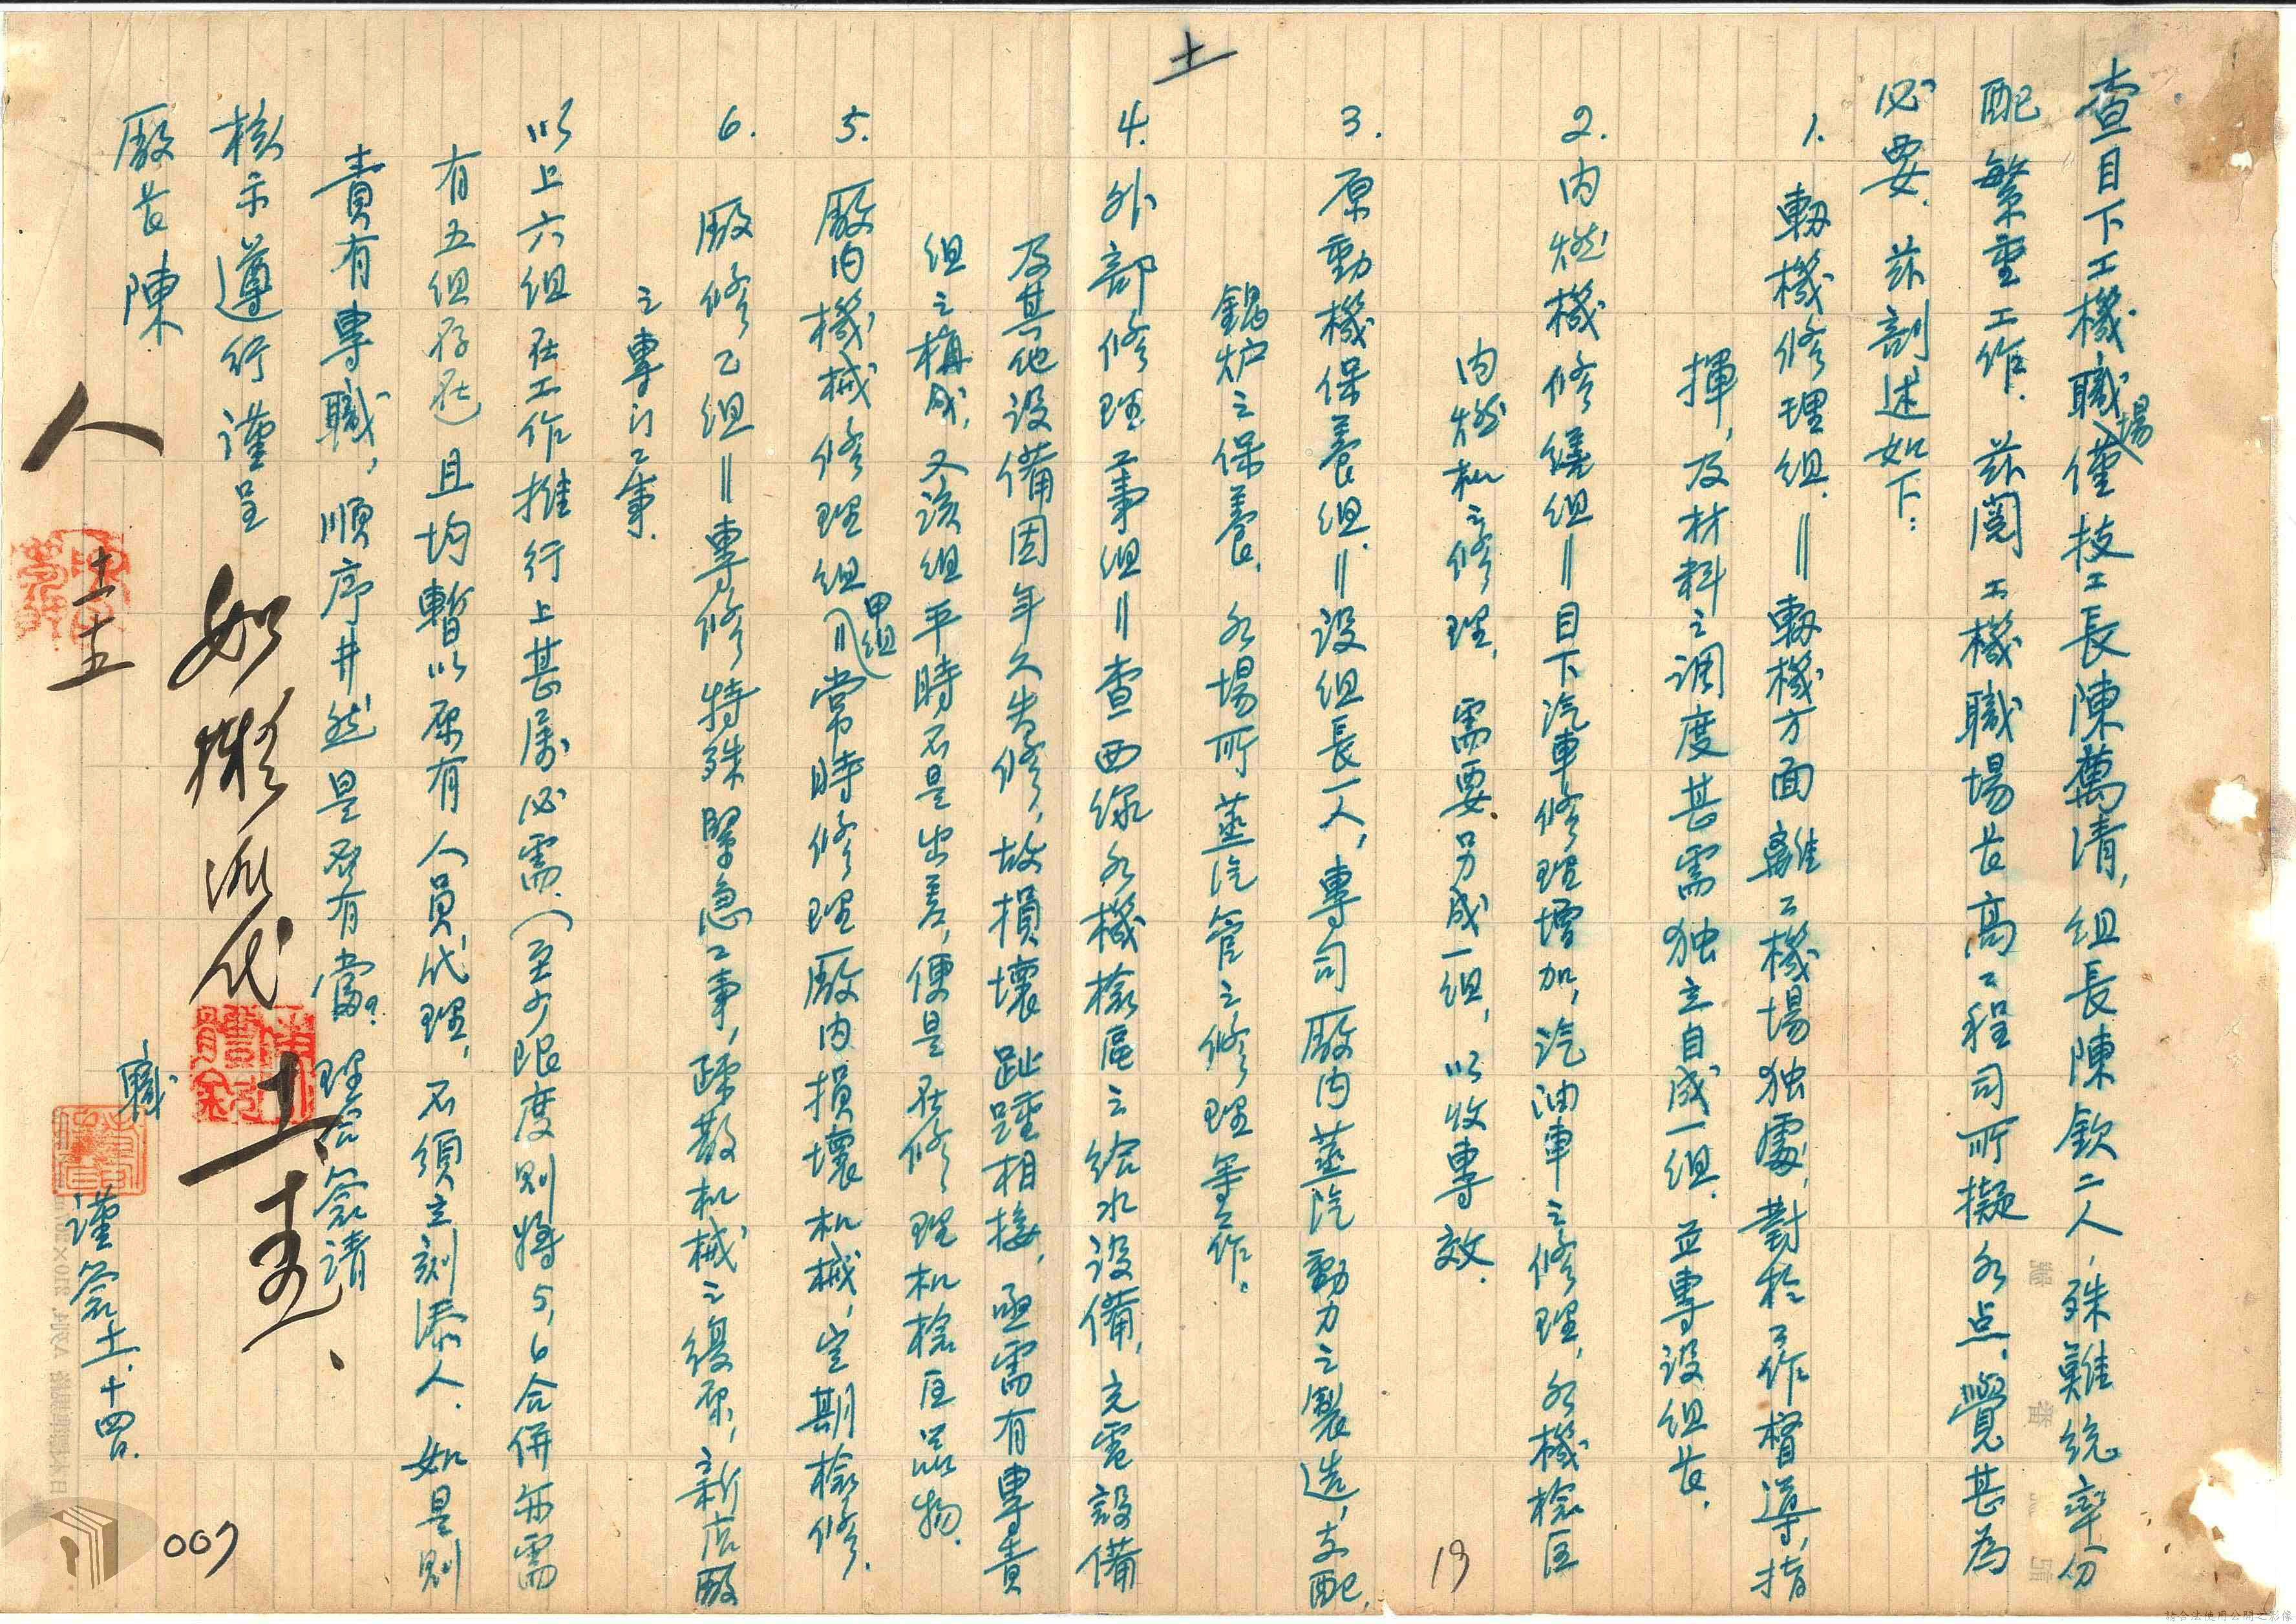 土
查目下工機職場僅技工長陳萬清,組長陳欽二人,殊難統率分
配繁重工作.茲閱工機職場長高工程司所擬各点,覺甚為
必要.茲剖述如下:
1. 轌機修理組.=轌機方面離工機場独處,對於工作督導,指
揮,及材料之調度甚需独立自成一組.並專設組長.
2. 内燃機修繕組=目下汽車修理增加,汽油車之修理,各機檢区
内燃机之修理,需要另成一組,以收專效.
3. 原動機保養組.=設組長一人,專司廠内蒸汽動力之製造,支配,
鍋炉之保養,各場所蒸汽管之修理等工作。
4. 外部修理工事組=查西線各機檢區之給水設備,充電設備
及其他設備因年久失修,故損壞趾踵相接,亟需有專責
組之構成,又該組平時不是出差,便是在修理机檢区品物.
5. 廠内機械修理組(甲組)=常時修理廠内損壞机械,定期檢修.
6. 廠修乙組=專修特殊緊急工事,疎散机械之復原,新店廠
之專門工事.
以上六組在工作推行上甚属必需.(至少限度則將5,6合併亦需
有五組存在)且均暫以原有人員代理,不須立刻添人.如是則
責有專職,順序井然是否有當?理合簽請
核示遵行謹呈
廠長陳
職 謹簽 土.十四.
如擬派代
十一 十五
13
007